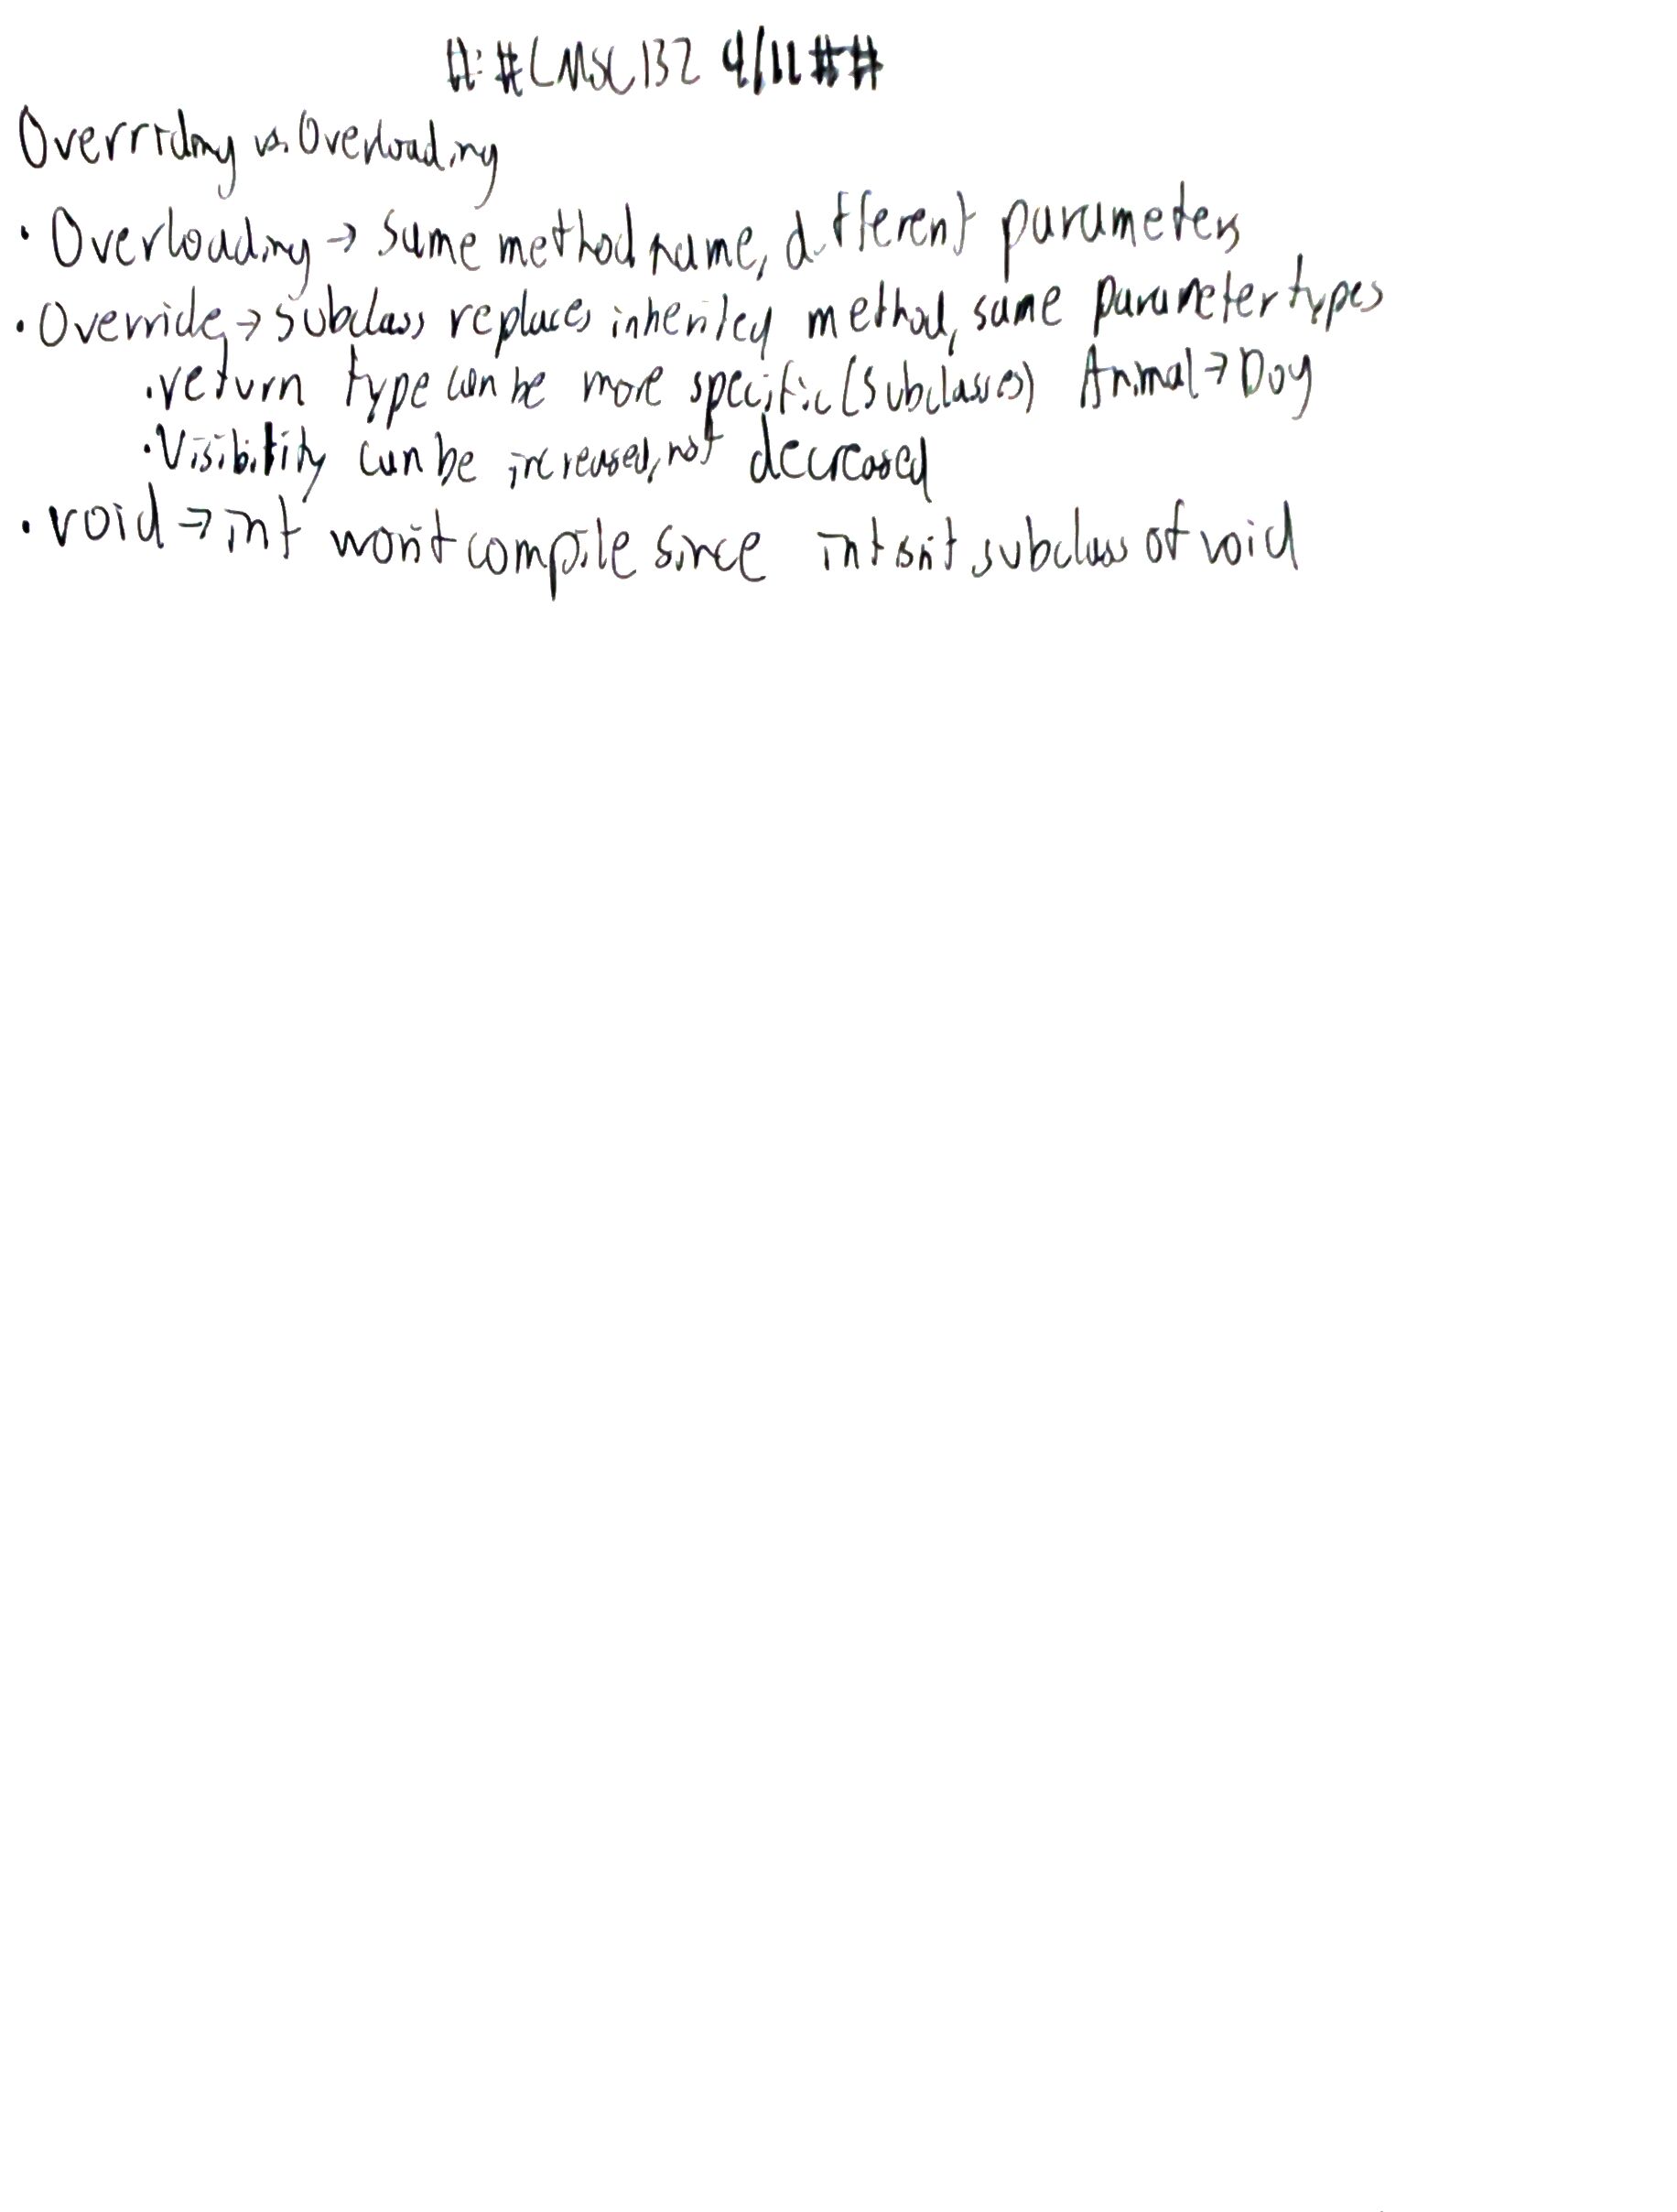 ## CMSC132 4/11 ##
Overriding vs. Overloading
• Overloading → same method name, different parameters
• Override → subclass replaces inherited method, same parameter types
• return type can be more specific (subclasses) Animal → Dog
• Visibility can be increased, not decreased
• void → int won't compile since int isn't subclass of void